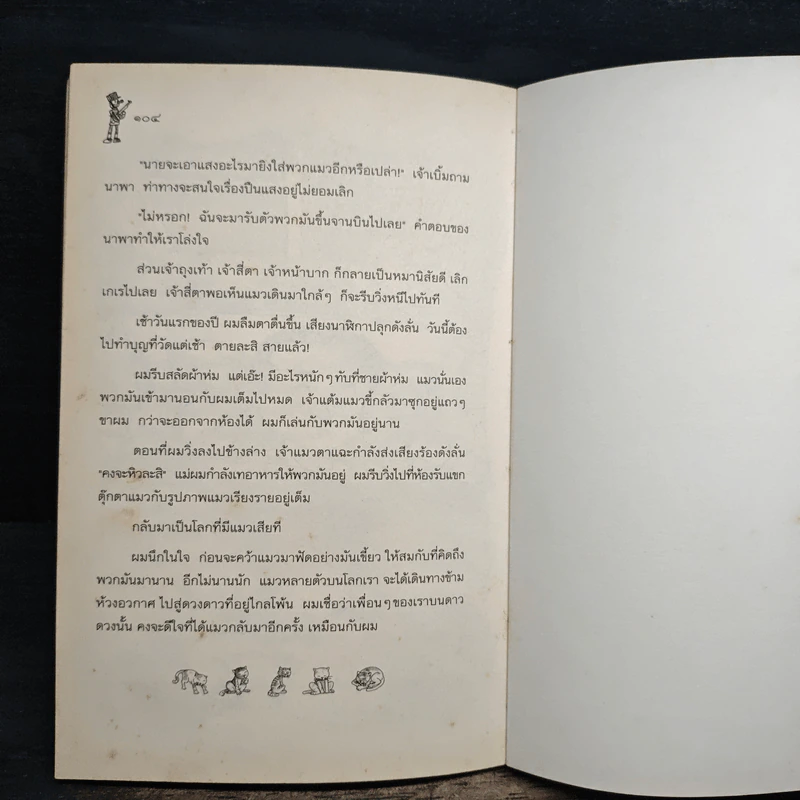 ๑๐๔
"นายจะเอาแสงอะไรมายิงใส่พวกแมวอีกหรือเปล่า!" เจ้าเบิ้มถาม
นาพา ท่าทางจะสนใจเรื่องปืนแสงอยู่ไม่ยอมเลิก
"ไม่หรอก! ฉันจะมารับตัวพวกมันขึ้นจานบินไปเลย" คำตอบของ
นาพาทำให้เราโล่งใจ
ส่วนเจ้าถุงเท้า เจ้าสี่ตา เจ้าหน้าบาก ก็กลายเป็นหมานิสัยดี เลิก
เกเรไปเลย เจ้าสี่ตาพอเห็นแมวเดินมาใกล้ๆ ก็จะรีบวิ่งหนีไปทันที
เช้าวันแรกของปี ผมลืมตาตื่นขึ้น เสียงนาฬิกาปลุกดังลั่น วันนี้ต้อง
ไปทำบุญที่วัดแต่เช้า ตายละสิ สายแล้ว!
ผมรีบสลัดผ้าห่ม แต่เอ๊ะ! มีอะไรหนักๆ ทับที่ชายผ้าห่ม แมวนั่นเอง
พวกมันเข้ามานอนกับผมเต็มไปหมด เจ้าแต้มแมวขี้กลัวมาซุกอยู่แถวๆ
ขาผม กว่าจะออกจากห้องได้ ผมก็เล่นกับพวกมันอยู่นาน
ตอนที่ผมวิ่งลงไปข้างล่าง เจ้าแมวตาแฉะกำลังส่งเสียงร้องดังลั่น
"คงจะหิวละสิ" แม่ผมกำลังเทอาหารให้พวกมันอยู่ ผมรีบวิ่งไปที่ห้องรับแขก
ตุ๊กตาแมวกับรูปภาพแมวเรียงรายอยู่เต็ม
กลับมาเป็นโลกที่มีแมวเสียที
ผมนึกในใจ ก่อนจะคว้าแมวมาฟัดอย่างมันเขี้ยว ให้สมกับที่คิดถึง
พวกมันมานาน อีกไม่นานนัก แมวหลายตัวบนโลกเรา จะได้เดินทางข้าม
ห้วงอวกาศ ไปสู่ดวงดาวที่อยู่ไกลโพ้น ผมเชื่อว่าเพื่อนๆ ของเราบนดาว
ดวงนั้น คงจะดีใจที่ได้แมวกลับมาอีกครั้ง เหมือนกับผม